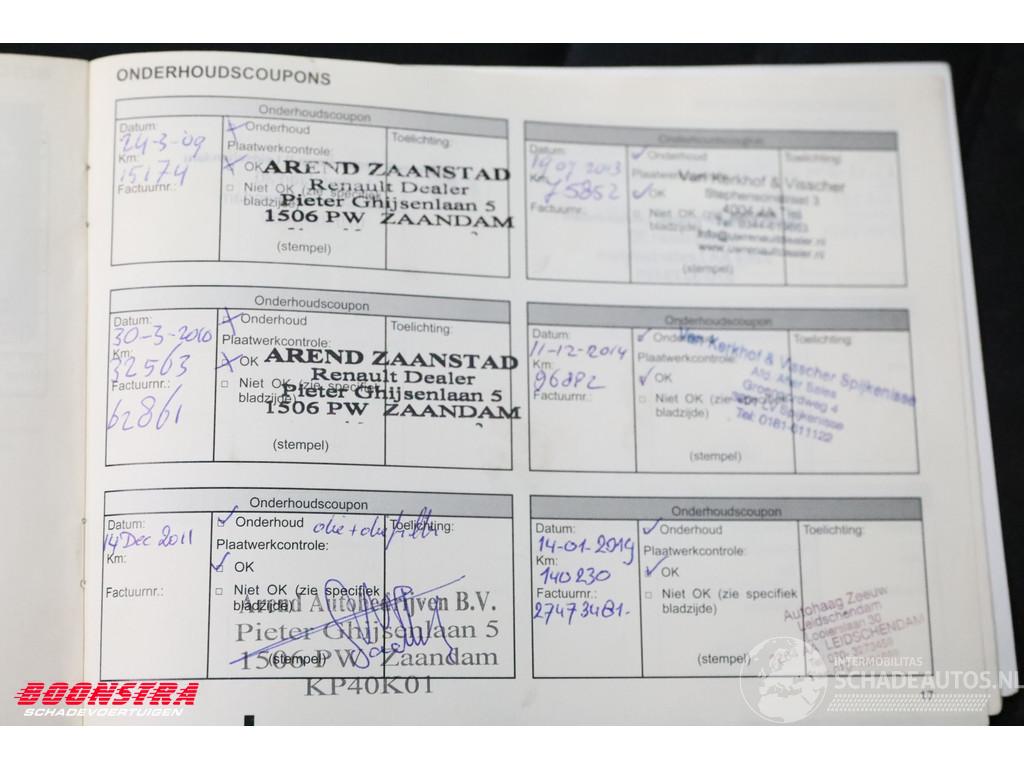 ONDERHOUDSCOUPONS
Onderhoudscoupon
Datum:
24-3-09
Km:
15174
Factuurnr.:
Onderhoud
Plaatwerkcontrole:
OK
Niet OK (zie specifiek
bladzijde)
(stempel)
Toelichting:
AREND ZAANSTAD
Renault Dealer
Pieter Ghijsenlaan 5
1506 PW ZAANDAM
Onderhoudscoupon
Datum:
30-3-2010
Km:
32563
Factuurnr.:
62861
Onderhoud
Plaatwerkcontrole:
OK
Niet OK (zie specifiek
bladzijde)
(stempel)
Toelichting:
AREND ZAANSTAD
Renault Dealer
Pieter Ghijsenlaan 5
1506 PW ZAANDAM
Onderhoudscoupon
Datum:
14 Dec 2011
Km:
Factuurnr.:
Onderhoud olie + oliefilter
Plaatwerkcontrole:
OK
Niet OK (zie specifiek
bladzijde)
(stempel)
Toelichting:
Arend Autobedrijven B.V.
Pieter Ghijsenlaan 5
1506 PW Zaandam
KP40K01
Onderhoudscoupon
Datum:
19 07 2013
Km:
75852
Factuurnr.:
Onderhoud
OK
Niet OK
bladzijde)
(stempel)
Toelichting:
Van Kerkhof & Visscher
Stephensonstraat 3
Onderhoudscoupon
Datum:
11-12-2014
Km:
96882
Factuurnr.:
Plaatwerkcontrole:
OK
Niet OK
bladzijde)
(stempel)
Toelichting:
Van Kerkhof & Visscher Spijkenisse
Afd. After Sales
Tel: 0181-611122
Onderhoudscoupon
Datum:
14-01-2019
Km:
140230
Factuurnr.:
27473481.-
Onderhoud
Plaatwerkcontrole:
OK
Niet OK (zie specifiek
bladzijde)
(stempel)
Toelichting:
Autohaag Zeeuw
Leidschendam
LEIDSCHENDAM
17
BOONSTRA
SCHADEVOERTUIGEN
INTERMOBILITAS
SCHADEAUTOS.NL